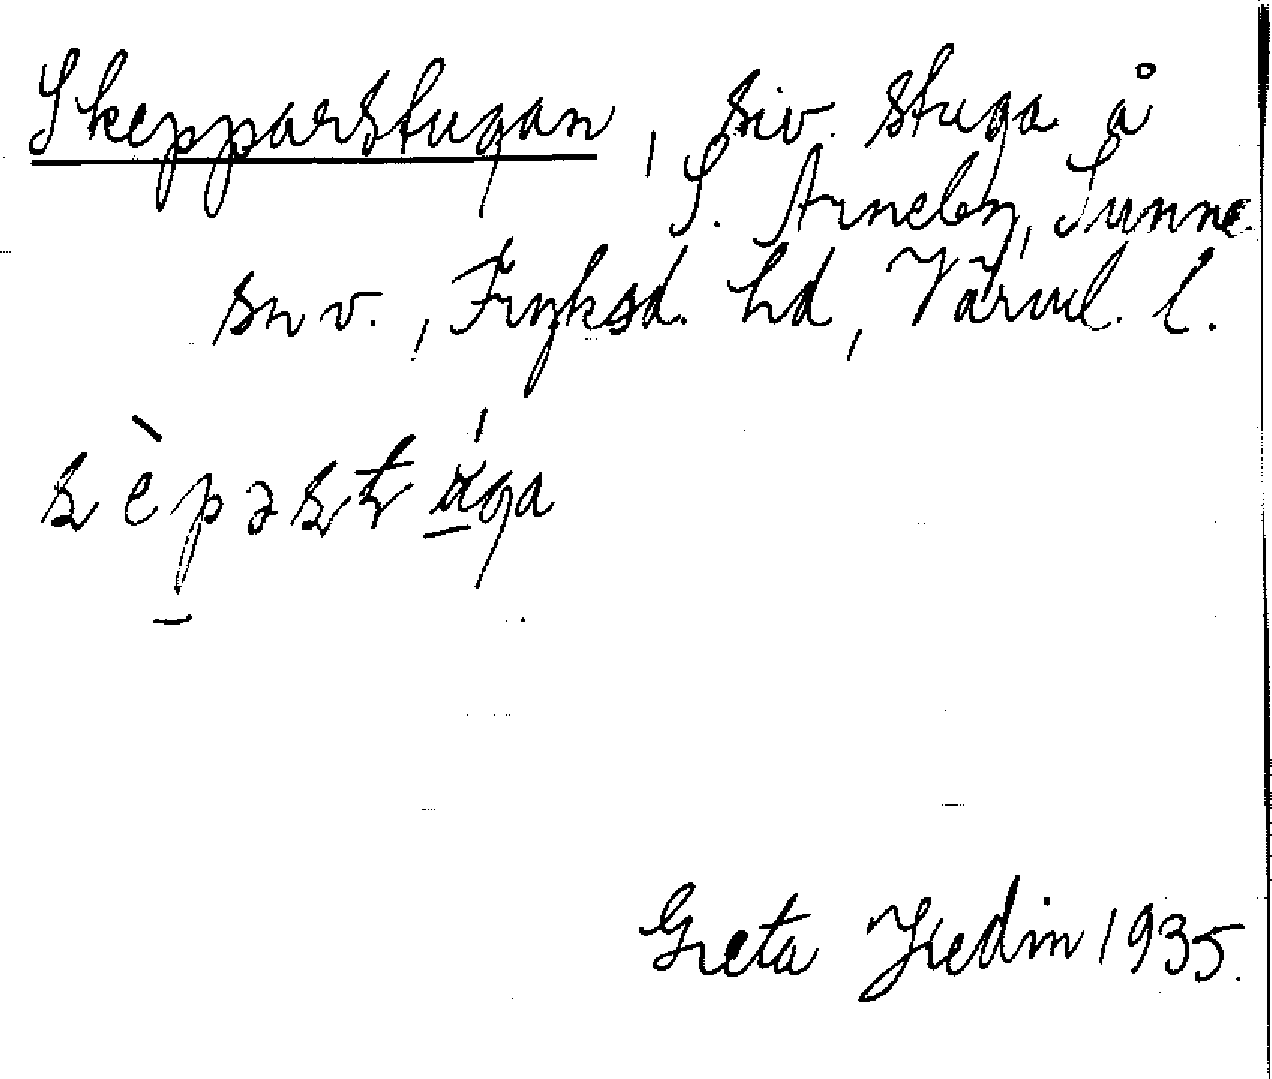 Skepparstugan, riv. stuga å
S. Arneby, Sunne
sn v., Fryksd. hd, Värml. l.
Greta Hedin 1935.